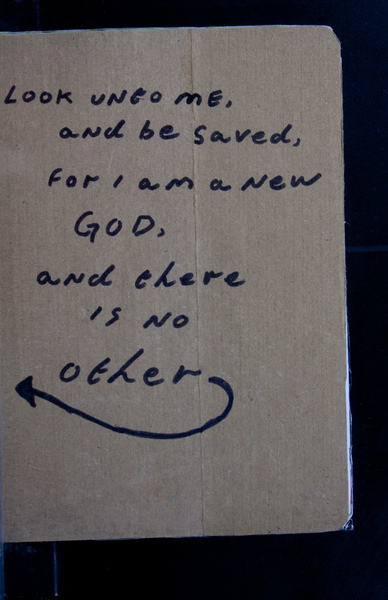 LOOK UNTO ME,
and be saved,
For I am a New
GOD,
and there
IS NO
other